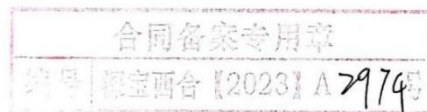 合同备案专用章
编号 深宝西合【2023】A 2974号